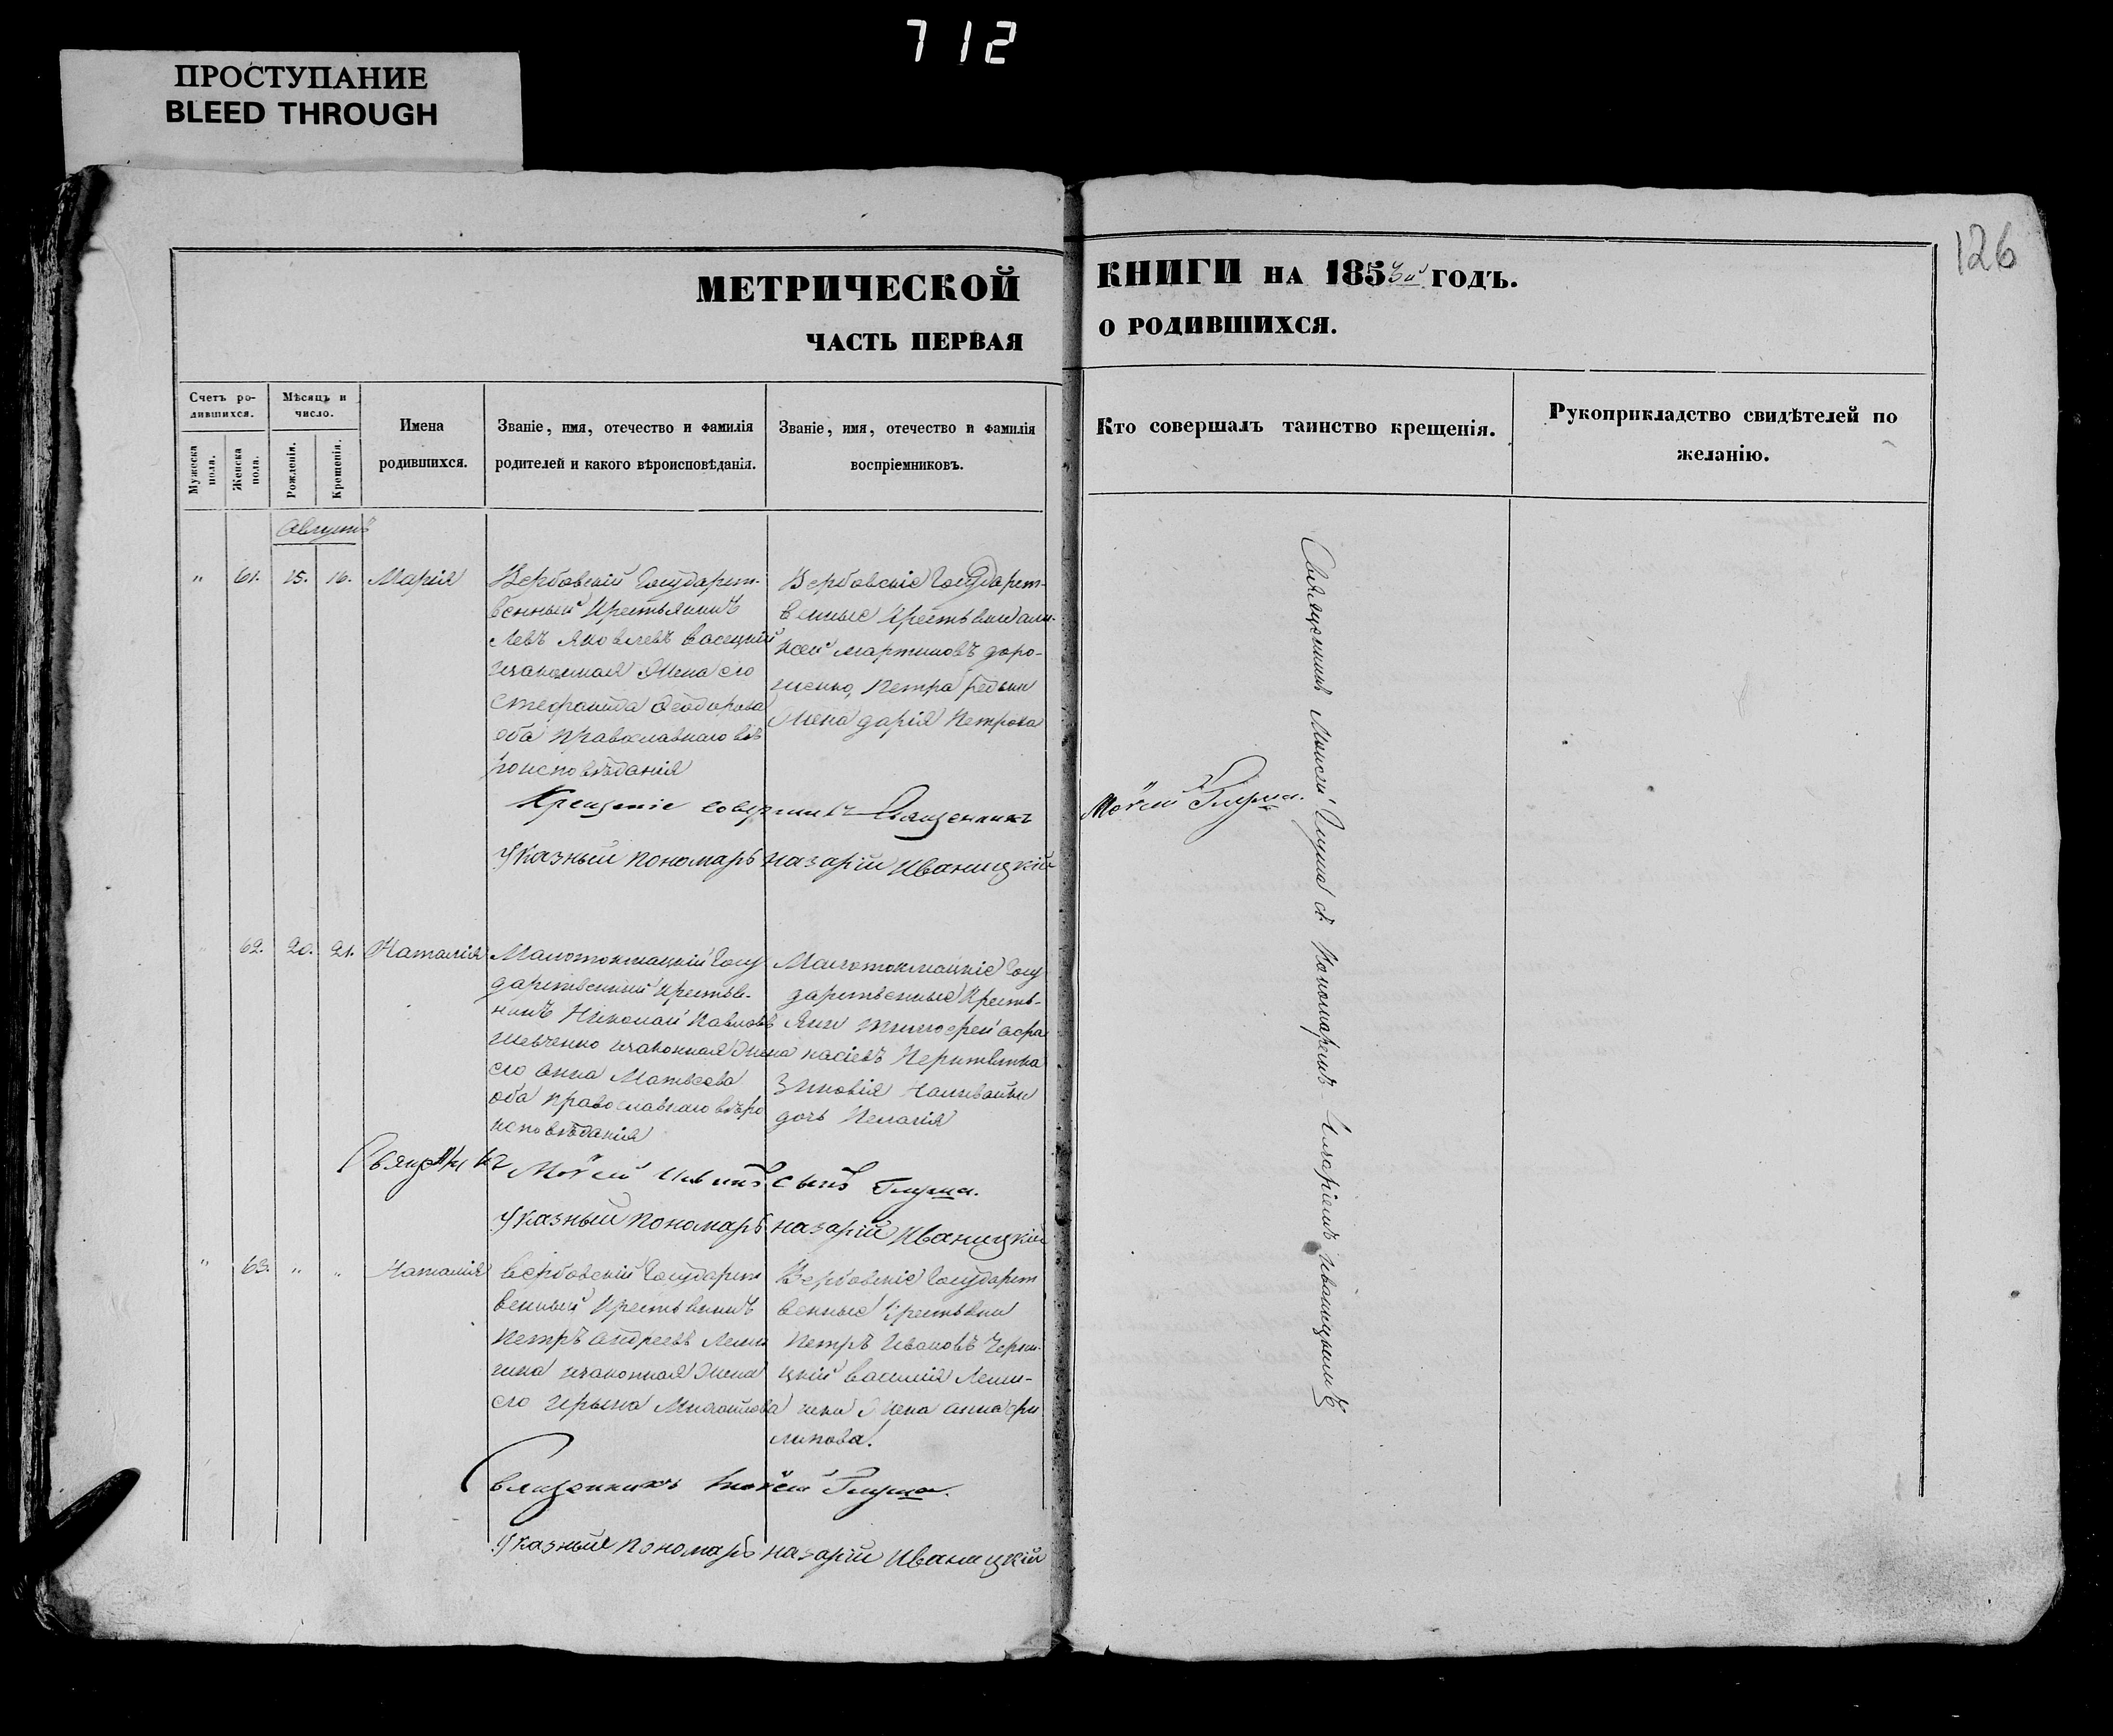 712
ПРОСТУПАНИЕ
BLEED THROUGH
126
МЕТРИЧЕСКОЙ КНИГИ НА 1853й ГОДЪ.
ЧАСТЬ ПЕРВАЯ О РОДИВШИХСЯ.
Счетъ родившихся.
Мужеска пола.
Женска пола.
Мѣсяцъ и число.
Рожденія.
Крещенія.
Имена родившихся.
Званіе, имя, отечество и фамилія родителей и какого вѣроисповѣданія.
Званіе, имя, отечество и фамилія воспріемниковъ.
Кто совершалъ таинство крещенія.
Рукоприкладство свидѣтелей по желанію.
Августъ
" 61. 15. 16. Марія
Вербовскій Государст-
венный Крестьянинъ
Левъ Яковлевъ Васецкій
изаконная Жена его
Стефанида Феодорова
оба православнаго вѣ
роисповѣданія
Вербовскіе Государст-
венные Крестьяни Али-
ксей Мартиновъ доро-
шенко, Петра
Жена дарія Петрова
Крещеніе совершилъ Священникъ Моѵсей Глума.
Указный пономарь назарій Иваницкій
" 62. 20. 21. Наталія
Малотокмацкій Госу
дарственный Крестья-
нинъ Николай Павловъ
Шевченко изаконная Жена
его Анна Матвеева
оба православнаго вѣро
исповѣданія
Малотокмацкіе Госу
дарственные Кресть-
яни Тимофей афа
насіевъ
Зиновія Наливайки
дочь Пелагія
Священникъ Моѵсей сынъ Глума.
Указный пономарь назарій Иваницкій
" 63. " " Наталія
Вербовскій Государст
венный Крестьянинъ
Петръ Андреевъ
изаконная Жена
его Ирына Михайлова
Вербовскіе Государст
венные Крестьяни
Петръ Ивановъ Черни-
цкій Василія
Жена анна фи
липова.
Священникъ Моѵсей Глума.
Указный пономарь назарій Иваницкій
Священникъ Моисей Глума съ Пономаремъ Назаріемъ Иваницкимъ